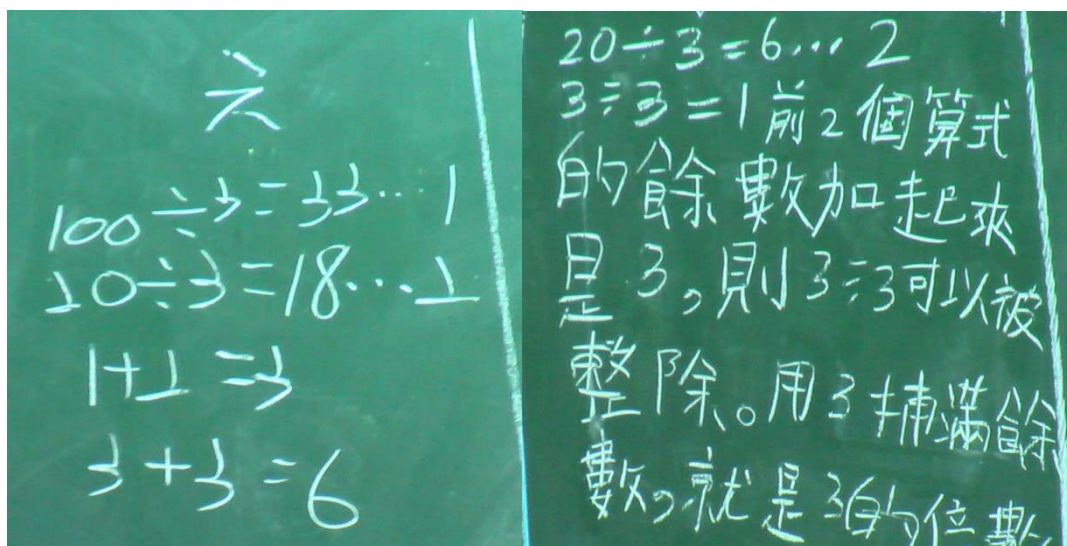 六
100÷3=33…1
10÷3=18…1
1+1=3
3+3=6
20÷3=6…2
3÷3=1前2個算式
的餘數加起來
是3,則3÷3可以被
整除。用3捕滿餘
數,就是3的位數